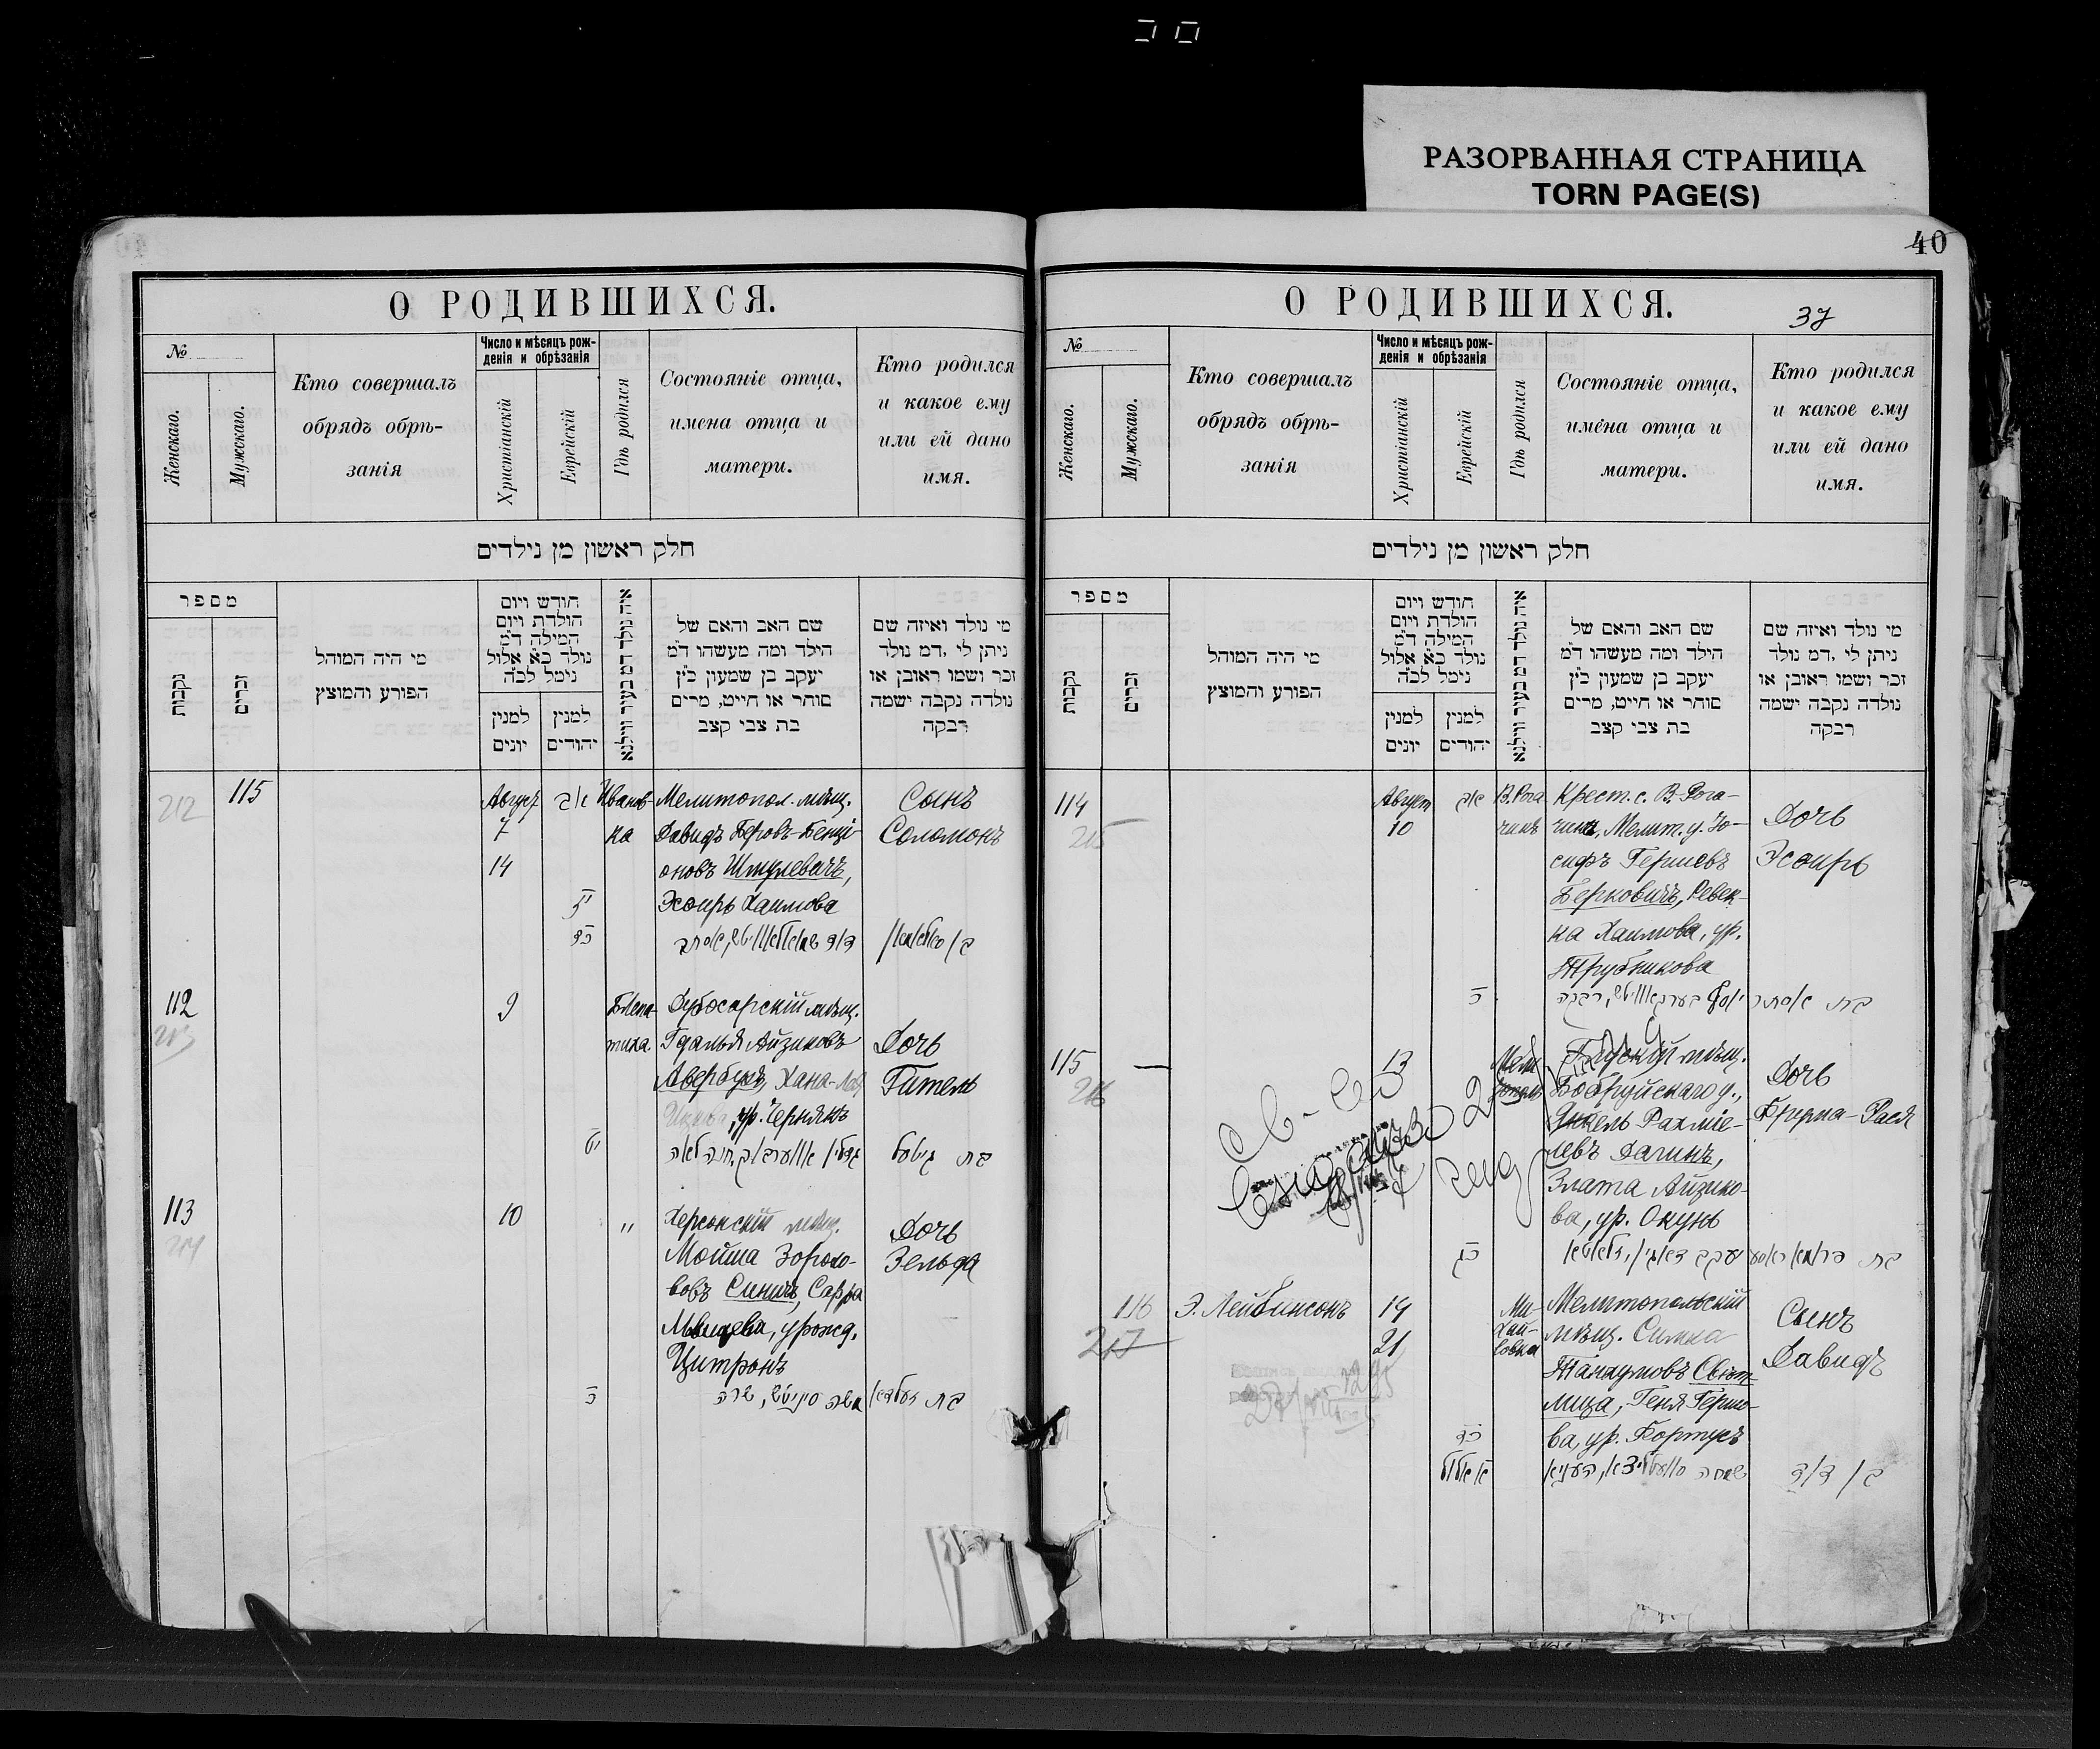 РАЗОРВАННАЯ СТРАНИЦА
TORN PAGE(S)
О РОДИВШИХСЯ.
№
Женскаго.
Мужскаго.
Кто совершалъ
обрядъ обрѣ-
занія
Число и мѣсяцъ рож-
денія и обрѣзанія
Христіанскій
Еврейскій
Гдѣ родился
Состояніе отца,
имена отца и
матери.
Кто родился
и какое ему
или ей дано
имя.
חלק ראשון מן נילדים
מספר
נקבות
זכרים
מי היה המוהל
הפורע והמוצץ
חודש ויום
הולדת ויום
המילה ד״מ
נולד כ״א אלול
נימל לכ״ה
למנין
יונים
למנין
יהודים
איה נולד דמ בעיר ווילנא
שם האב והאם של
הילד ומה מעשהו ד״מ
יעקב בן שמעון כ״ץ
סוחר או חייט, מרים
בת צבי קצב
מי נולד ואיזה שם
ניתן לי ,דמ נולד
זכר ושמו ראובן או
נולדה נקבה ישמה
רבקה
212
115
Август
7
14
אב
יז
כד
Иванов-
ка
Мелитопол. мѣщ.
Давидъ Беровъ-Бенці-
оновъ Шмулевичъ,
Эсѳирь Хаимова
Сынъ
Соломонъ
112
213
9
יט
Блага-
тиха
Дубосарскій мѣщ.
Гдалья Айзиковъ
Авербухъ, Хана-Лея
ур. Чернякъ
Дочь
Гитель
בת גיטעל
113
214
10
כ
"
Херсонскій мѣщ.
Мойша Зорохо-
вовъ Синичъ, Сарра
урожд.
Цитронъ
Дочь
Зельда
משה סיניטש, שרה
40
37
О РОДИВШИХСЯ.
№
Женскаго.
Мужскаго.
Кто совершалъ
обрядъ обрѣ-
занія
Число и мѣсяцъ рож-
денія и обрѣзанія
Христіанскій
Еврейскій
Гдѣ родился
Состояніе отца,
имена отца и
матери.
Кто родился
и какое ему
или ей дано
имя.
חלק ראשון מן נילדים
מספר
נקבות
זכרים
מי היה המוהל
הפורע והמוצץ
חודש ויום
הולדת ויום
המילה ד״מ
נולד כ״א אלול
נימל לכ״ה
למנין
יונים
למנין
יהודים
איה נולד דמ בעיר ווילנא
שם האב והאם של
הילד ומה מעשהו ד״מ
יעקב בן שמעון כ״ץ
סוחר או חייט, מרים
בת צבי קצב
מי נולד ואיזה שם
ניתן לי ,דמ נולד
זכר ושמו ראובן או
נולדה נקבה ישמה
רבקה
114
215
Август
10
אב
כ
В. Рога
чикъ
Крест. с. В. Рога-
чика, Мелит. у. Іо-
сифъ Гершевъ
Берковичъ, Ревек-
ка Хаимова, ур.
Трубникова
Дочь
Эсѳирь
בת אסתר
115
216
13
כג
Мели
тополь
мѣщ.
Бобруйскаго у.,
Янкель Рахміе-
левъ Дагинъ,
Злата Айзико-
ва, ур. Окунь
Дочь
Фрума-Рася
יעקב דאגין, זלאטא
116
217
Э. Лейбинсонъ
14
21
כד
א אלול
Ми-
хай-
ловка
Мелитопольскій
мѣщ. Симха
Танхумовъ Свѣт-
лица, Геня Гершо-
ва, ур. Фортусъ
Сынъ
Давидъ
בן דוד